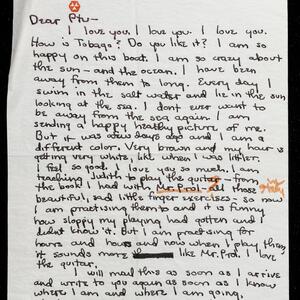 Dear Ptu—
I love you. I love you. I love you.
How is Tobago? Do you like it? I am so
happy on this boat. I am so crazy about
the sun—and the ocean. I have been
away from them to long. Every day I
swim in the salt water and lie in the sun
looking at the sea. I dont ever want to
be away from the sea again I am
sending a happy healthy picture of me.
But it was a few days ago and I am a
different color. Very brown and my hair is
getting very white, like when I was littler.
I feel so good. I love you so much. I am
teaching Judith to play the guitar—from
the book I had with Mr. Prol. All those
beautiful, sad little finger exercises—so now
I am practising them to and it is funny
how sloppy my playing had gotten and I
didnt know it. But I am practising for
hours and hours and now when I play them,
it sounds more like Mr. Prol. I love
the guitar.
I will mail this as soon as I arrive
and write to you again as soon as I know
where I am and where I am going.